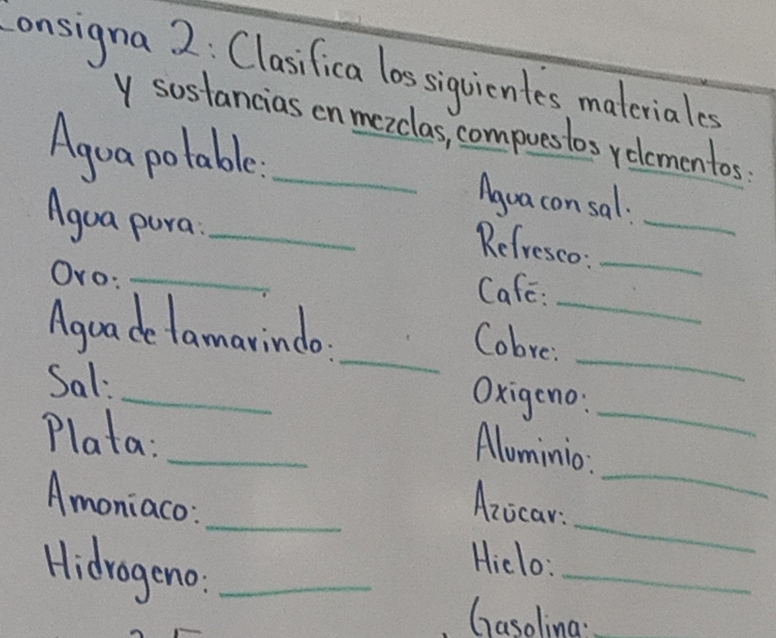 Consigna 2: Clasifica los siguientes materiales
y sustancias en mezclas, compuestos y elementos:
Agua potable:
Agua pura:
Oro:
Agua de tamarindo:
Sal:
Plata:
Amoniaco:
Hidrogeno:
Agua con sal:
Refresco:
Café:
Cobre:
Oxigeno:
Aluminio:
Azúcar:
Hielo:
Gasolina: